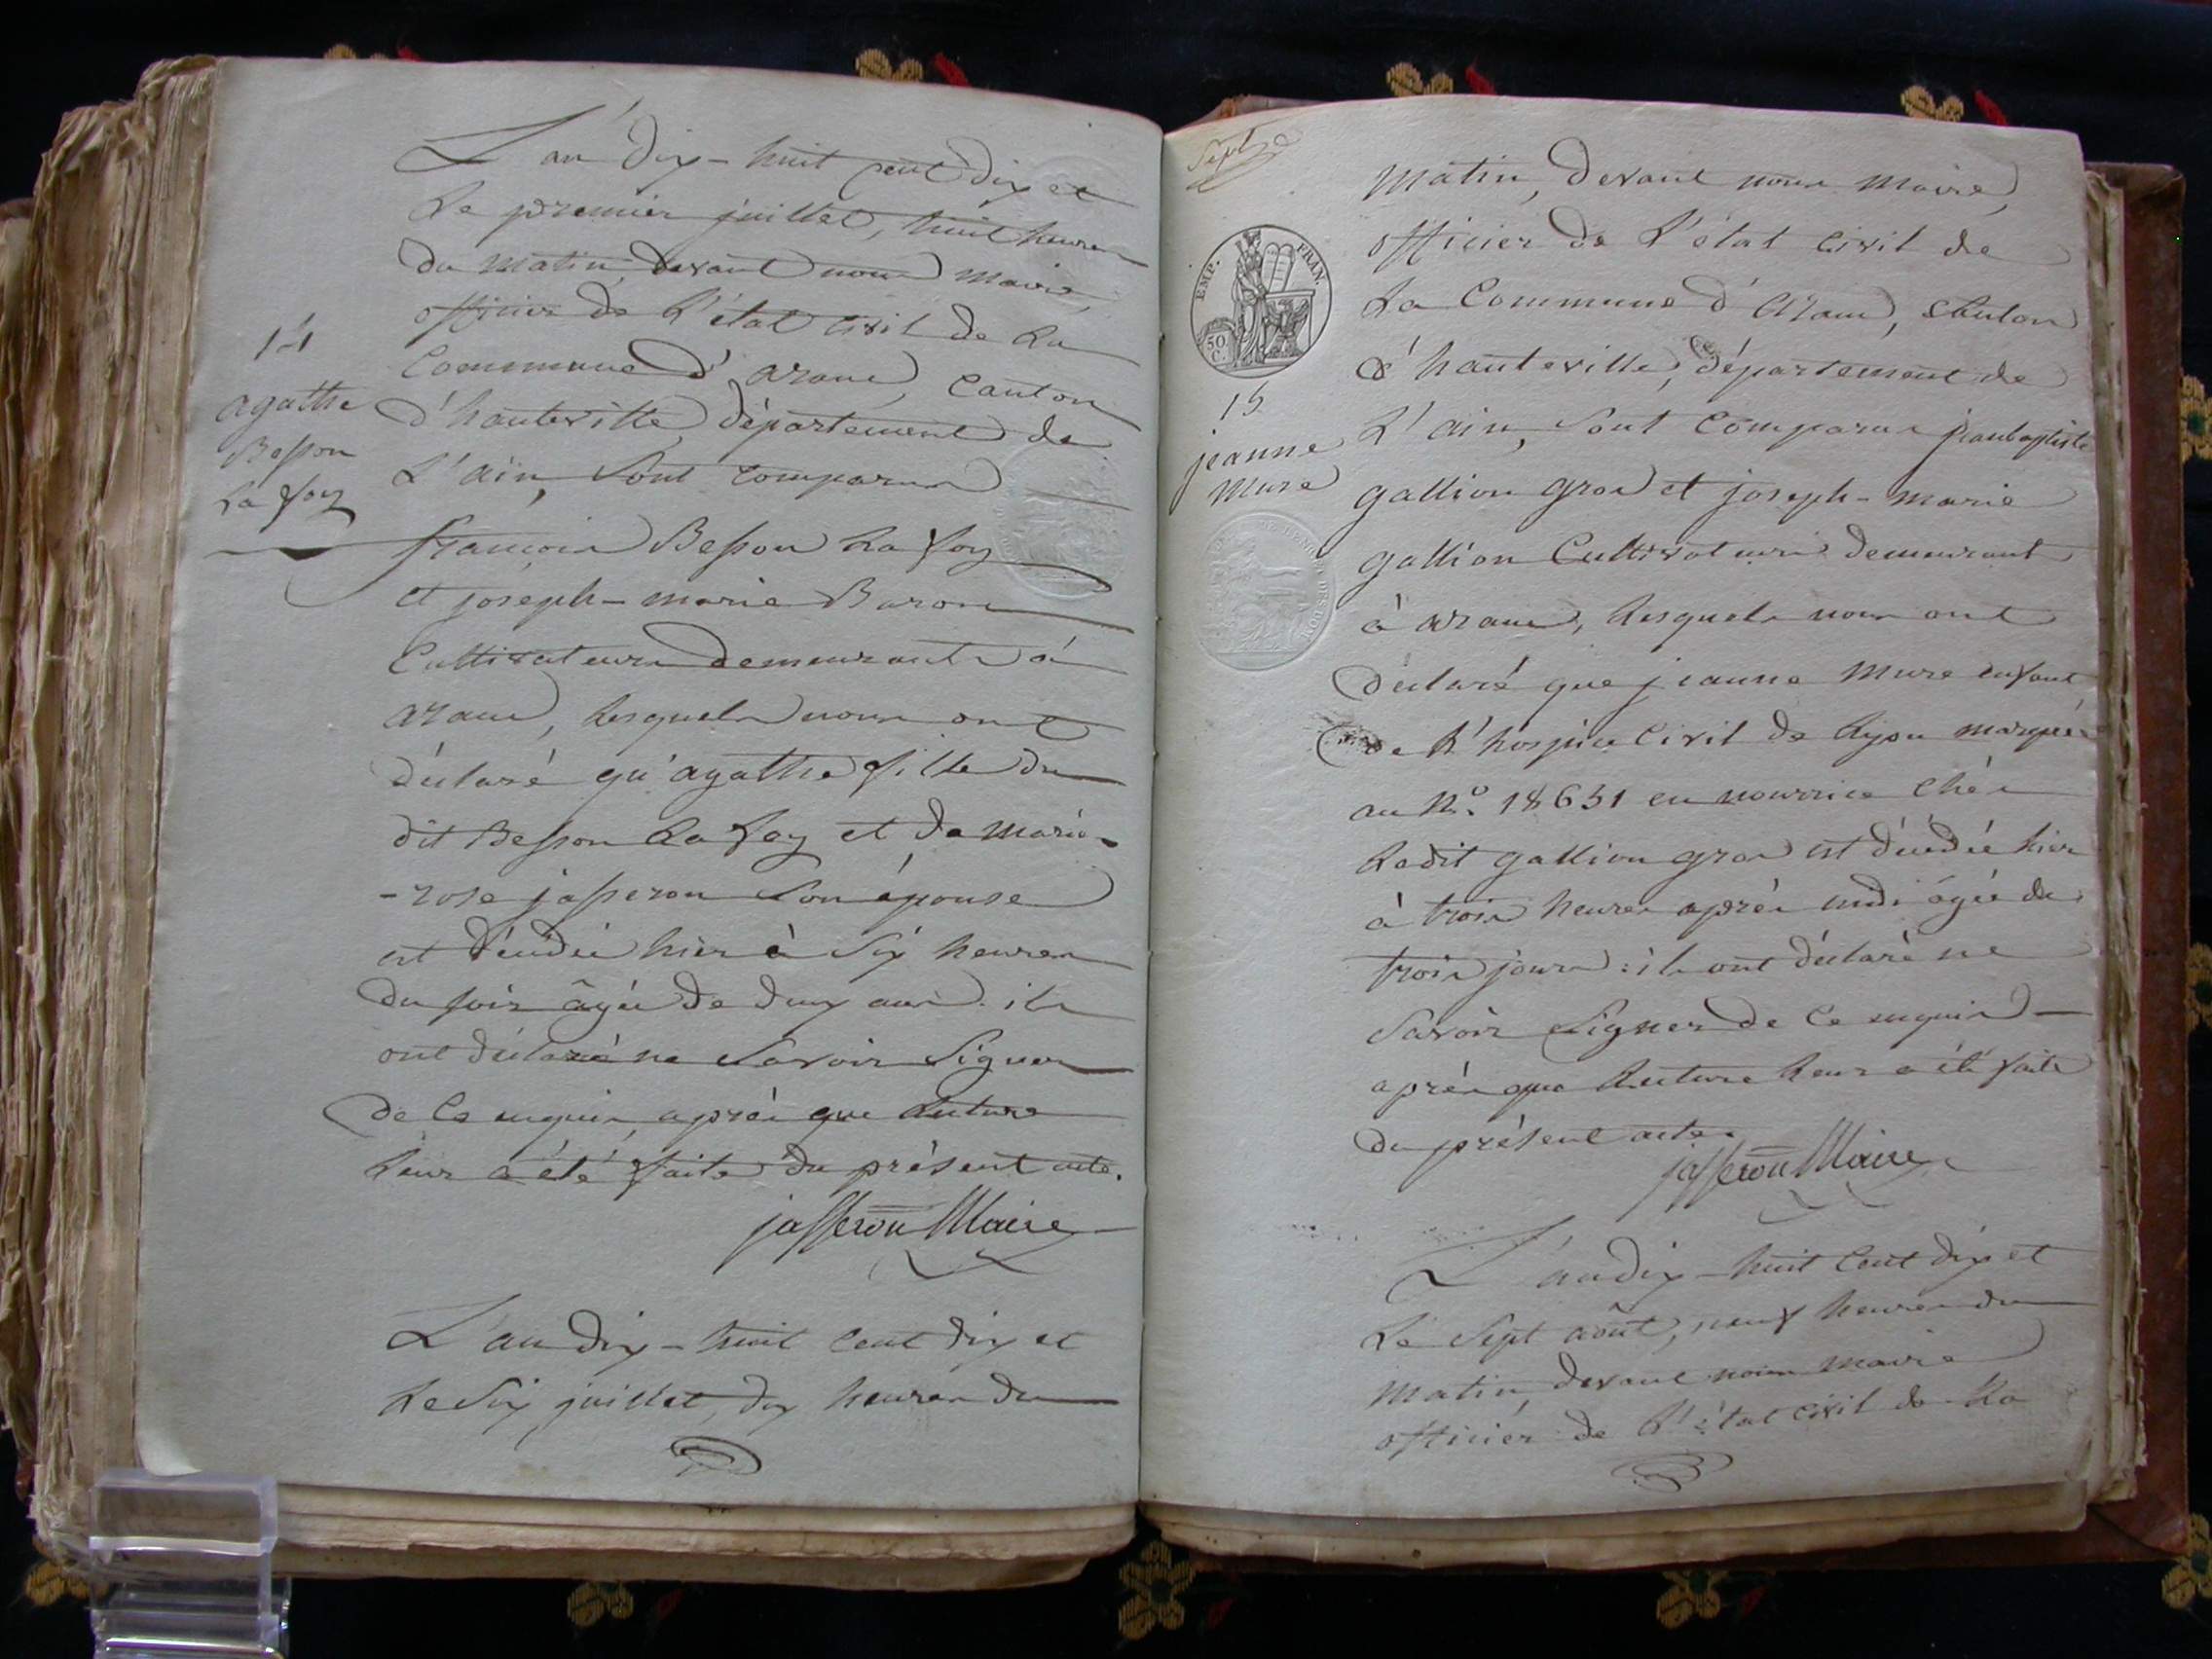 L'an dix-huit cent dix et
Le premier juillet, huit heures
du matin, devant nous maire,
officier de L'état civil de La
Commune d'arane, canton
d'hauteville, département de
L'ain, sont comparus
françois Besson La foy
et joseph-marie Baron
Cultivateurs demeurants à
arane, Lesquels nous ont
déclaré qu'agathe fille du
dit Besson La foy et de marie-
-rose jasseron son épouse
est décédée hier à six heures
du soir âgée de deux ans. ils
ont déclaré ne savoir signer
de ce enquis, après que Lecture
Leur a été faite du présent acte.
jasseron Maire
14
agathe
Besson
La foy
L'an dix-huit cent dix et
Le six juillet, dix heures du
Sept
EMP. FRAN.
50
C.
15
jeanne
Mure
matin, devant nous maire,
officier de L'état civil de
La Commune d'arane, Canton
d'hauteville, département de
L'ain, sont comparus jean baptiste
gallion gros et joseph-marie
gallion Cultivateurs demeurant
à arane, Lesquels nous ont
déclaré que jeanne Mure enfant
de L'hospice Civil de Lyon marquée
au N.º 18651 en nourrice chés
Ledit gallion gros est décédée hier
à trois heures après midi âgée de
trois jours: ils ont déclaré ne
savoir signer de ce enquis
après que Lecture Leur a été faite
du présent acte.
jasseron Maire
L'an dix-huit cent dix et
Le sept août, neuf heures du
matin, devant nous maire
officier de L'état civil de La